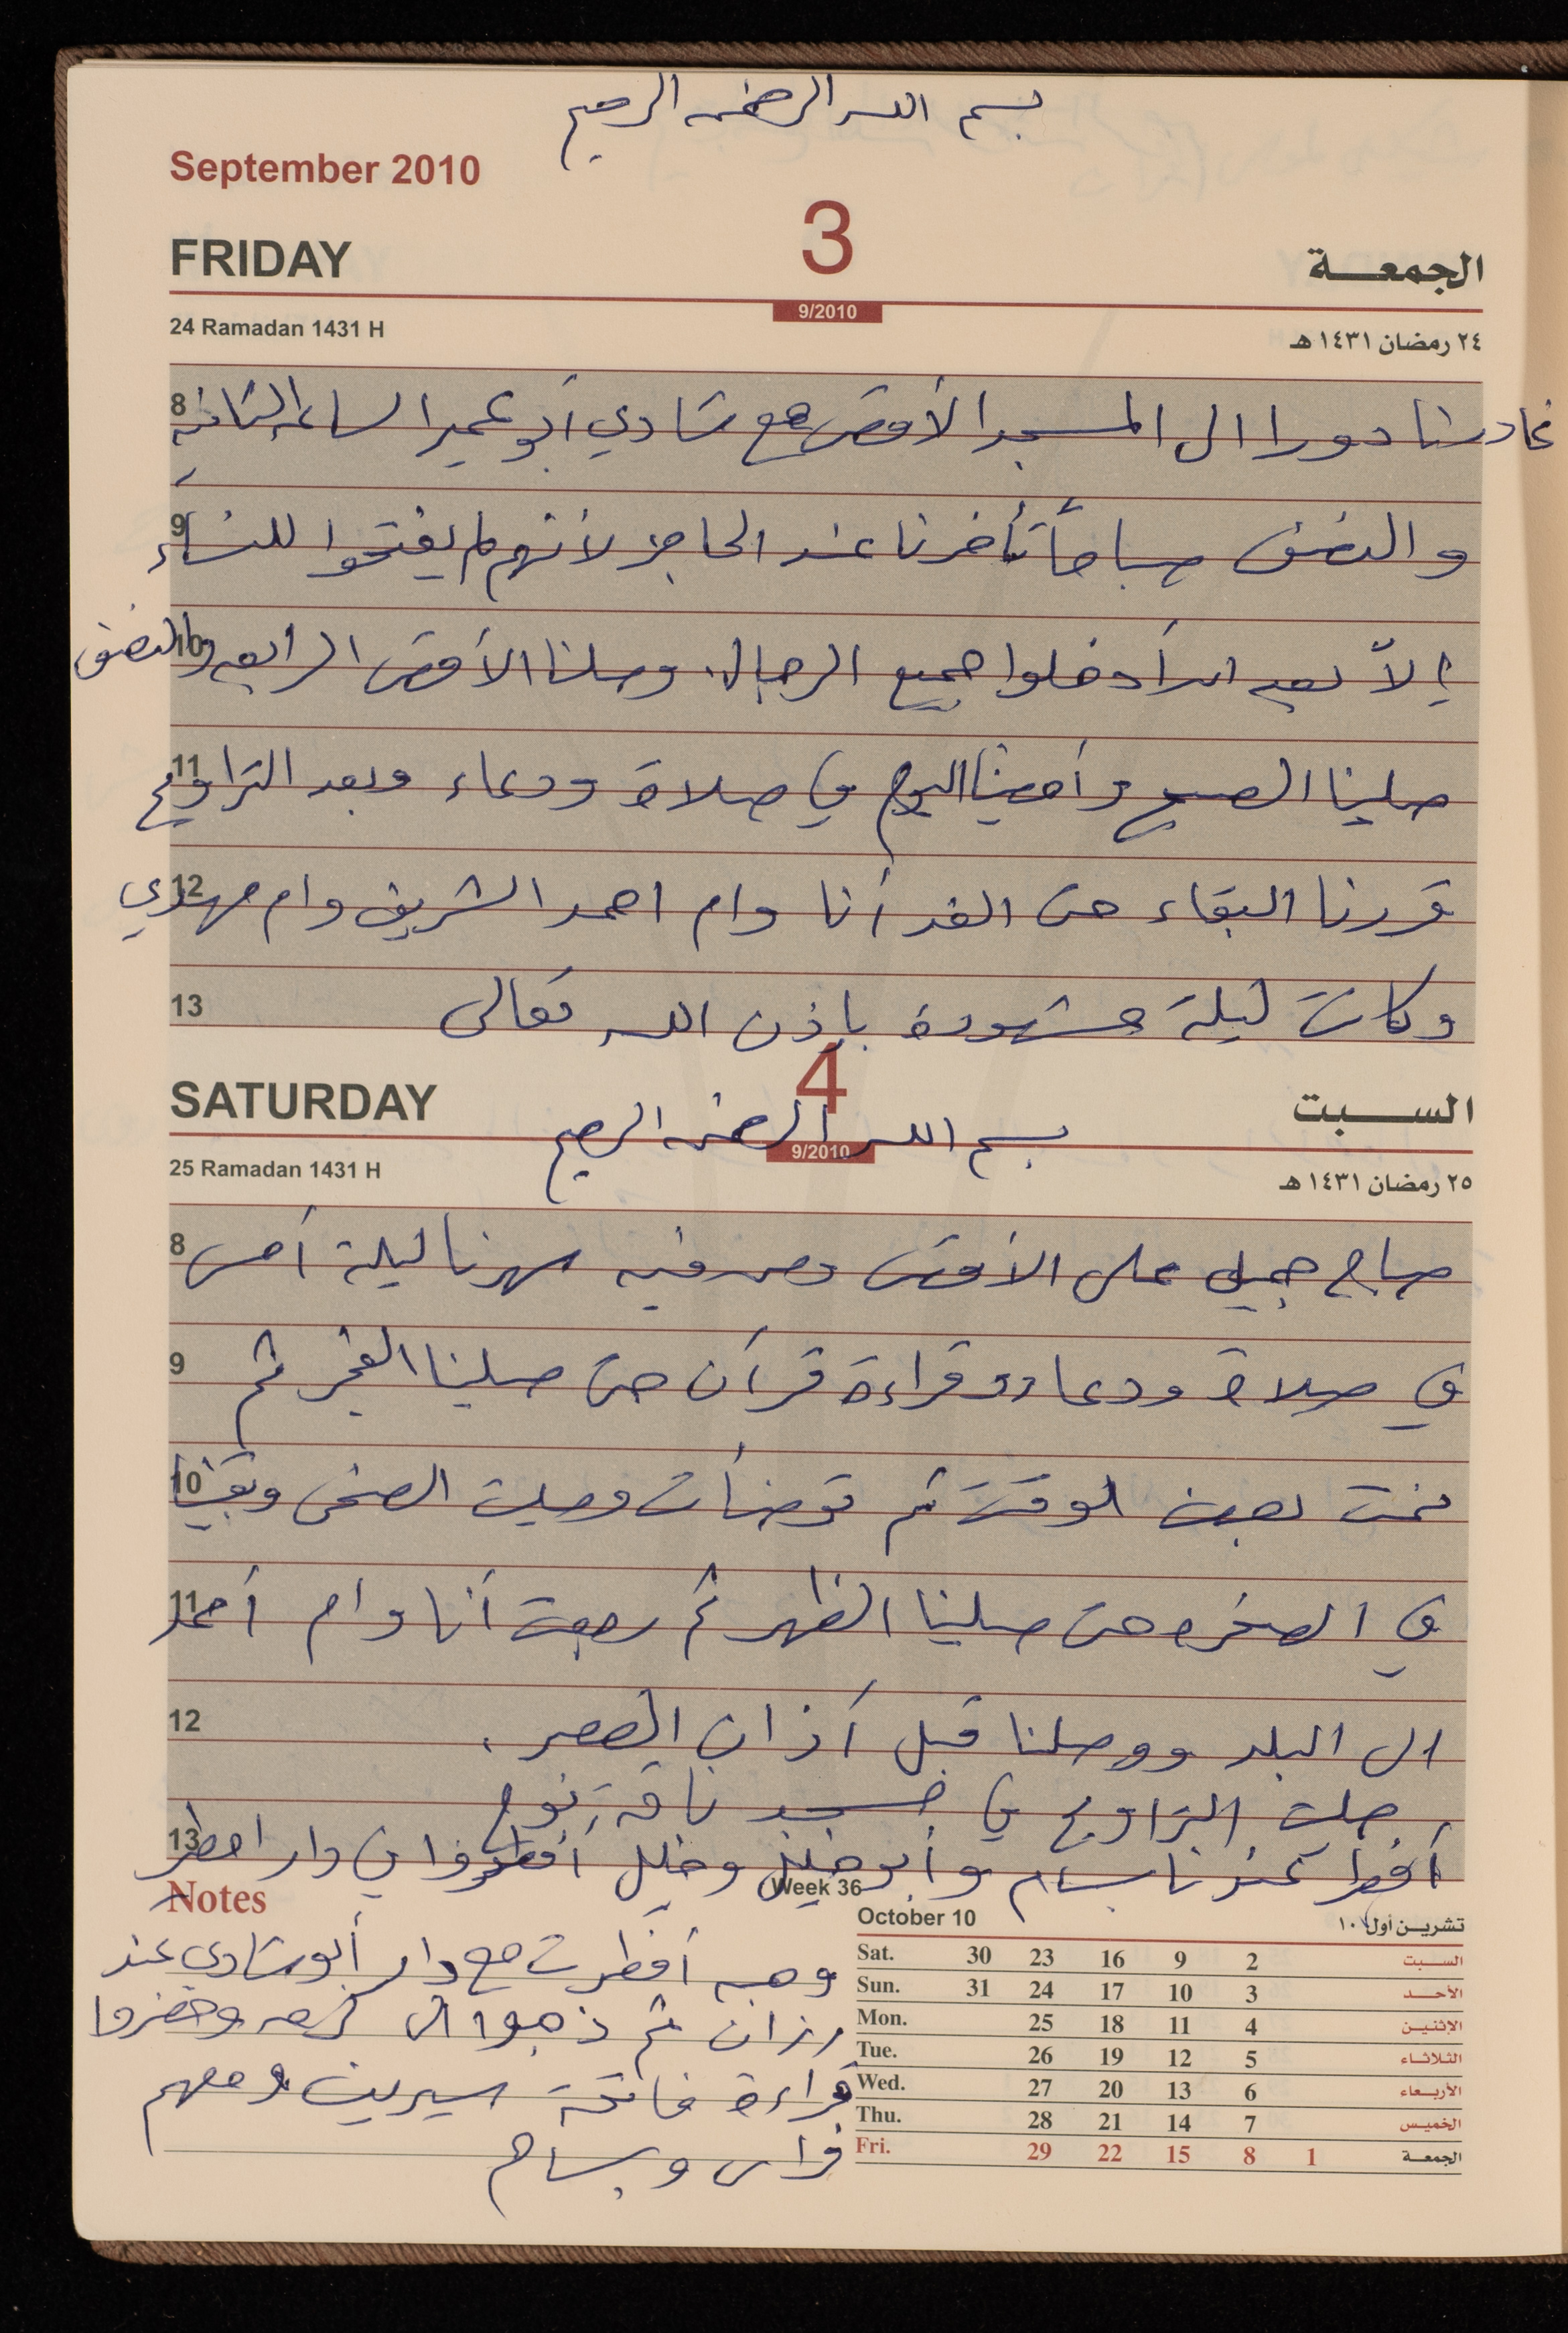 بسم الله الرحمن الرحيم
September 2010
FRIDAY 3 الجمعـــة
9/2010
24 Ramadan 1431 H ٢٤ رمضان ١٤٣١ هـ
8 غادرنا دورا الى المسجد الأقصى مع شادي أبو عمير الساعة الثانية
9 والنصف صباحاً تأخرنا عند الحاجز لأنهم لم يفتحوا للنساء
10 إلاّ بعد ان أدخلوا جميع الرجال. وصلنا الأقصى الرابعه والنصف
11 صلينا الصبح وأمضينا اليوم في صلاة ودعاء وبعد التراويح
12 قررنا البقاء حتى الغد أنا وام احمد الشريف وام مهدي
13 وكانت ليلة مشهودة بإذن الله تعالى
SATURDAY 4 الســـبت
بسم الله الرحمن الرحيم
9/2010
25 Ramadan 1431 H ٢٥ رمضان ١٤٣١ هـ
8 صباح جميل على الأقصى ومن فيه سهرنا ليلة أمس
9 في صلاة ودعاء وقراءة قرآن حتى صلينا الفجر ثم
10 نمت بعض الوقت ثم توضأت وصليت الضحى وبقينا
11 في الصخره حتى صلينا الظهر ثم رجعت أنا وام أحمد
12 الى البلد ووصلنا قبل أذان العصر.
صليت التراويح في مسجد ناقة نوح
13 أفطر عندنا بسام وأبو خليل وخليل أفطروا في دار
Notes
Week 36
وهبه أفطرت مع دار أبو شادي عند
رزان ثم ذهبوا الى وحضروا
قراءة فاتحة سيرين ومعهم
فراس وبسام
October 10 تشرين أول ١٠
Sat. 30 23 16 9 2 الســـبت
Sun. 31 24 17 10 3 الأحـــد
Mon. 25 18 11 4 الإثنيـن
Tue. 26 19 12 5 الثلاثـاء
Wed. 27 20 13 6 الأربـعاء
Thu. 28 21 14 7 الخميـس
Fri. 29 22 15 8 1 الجمعـــة